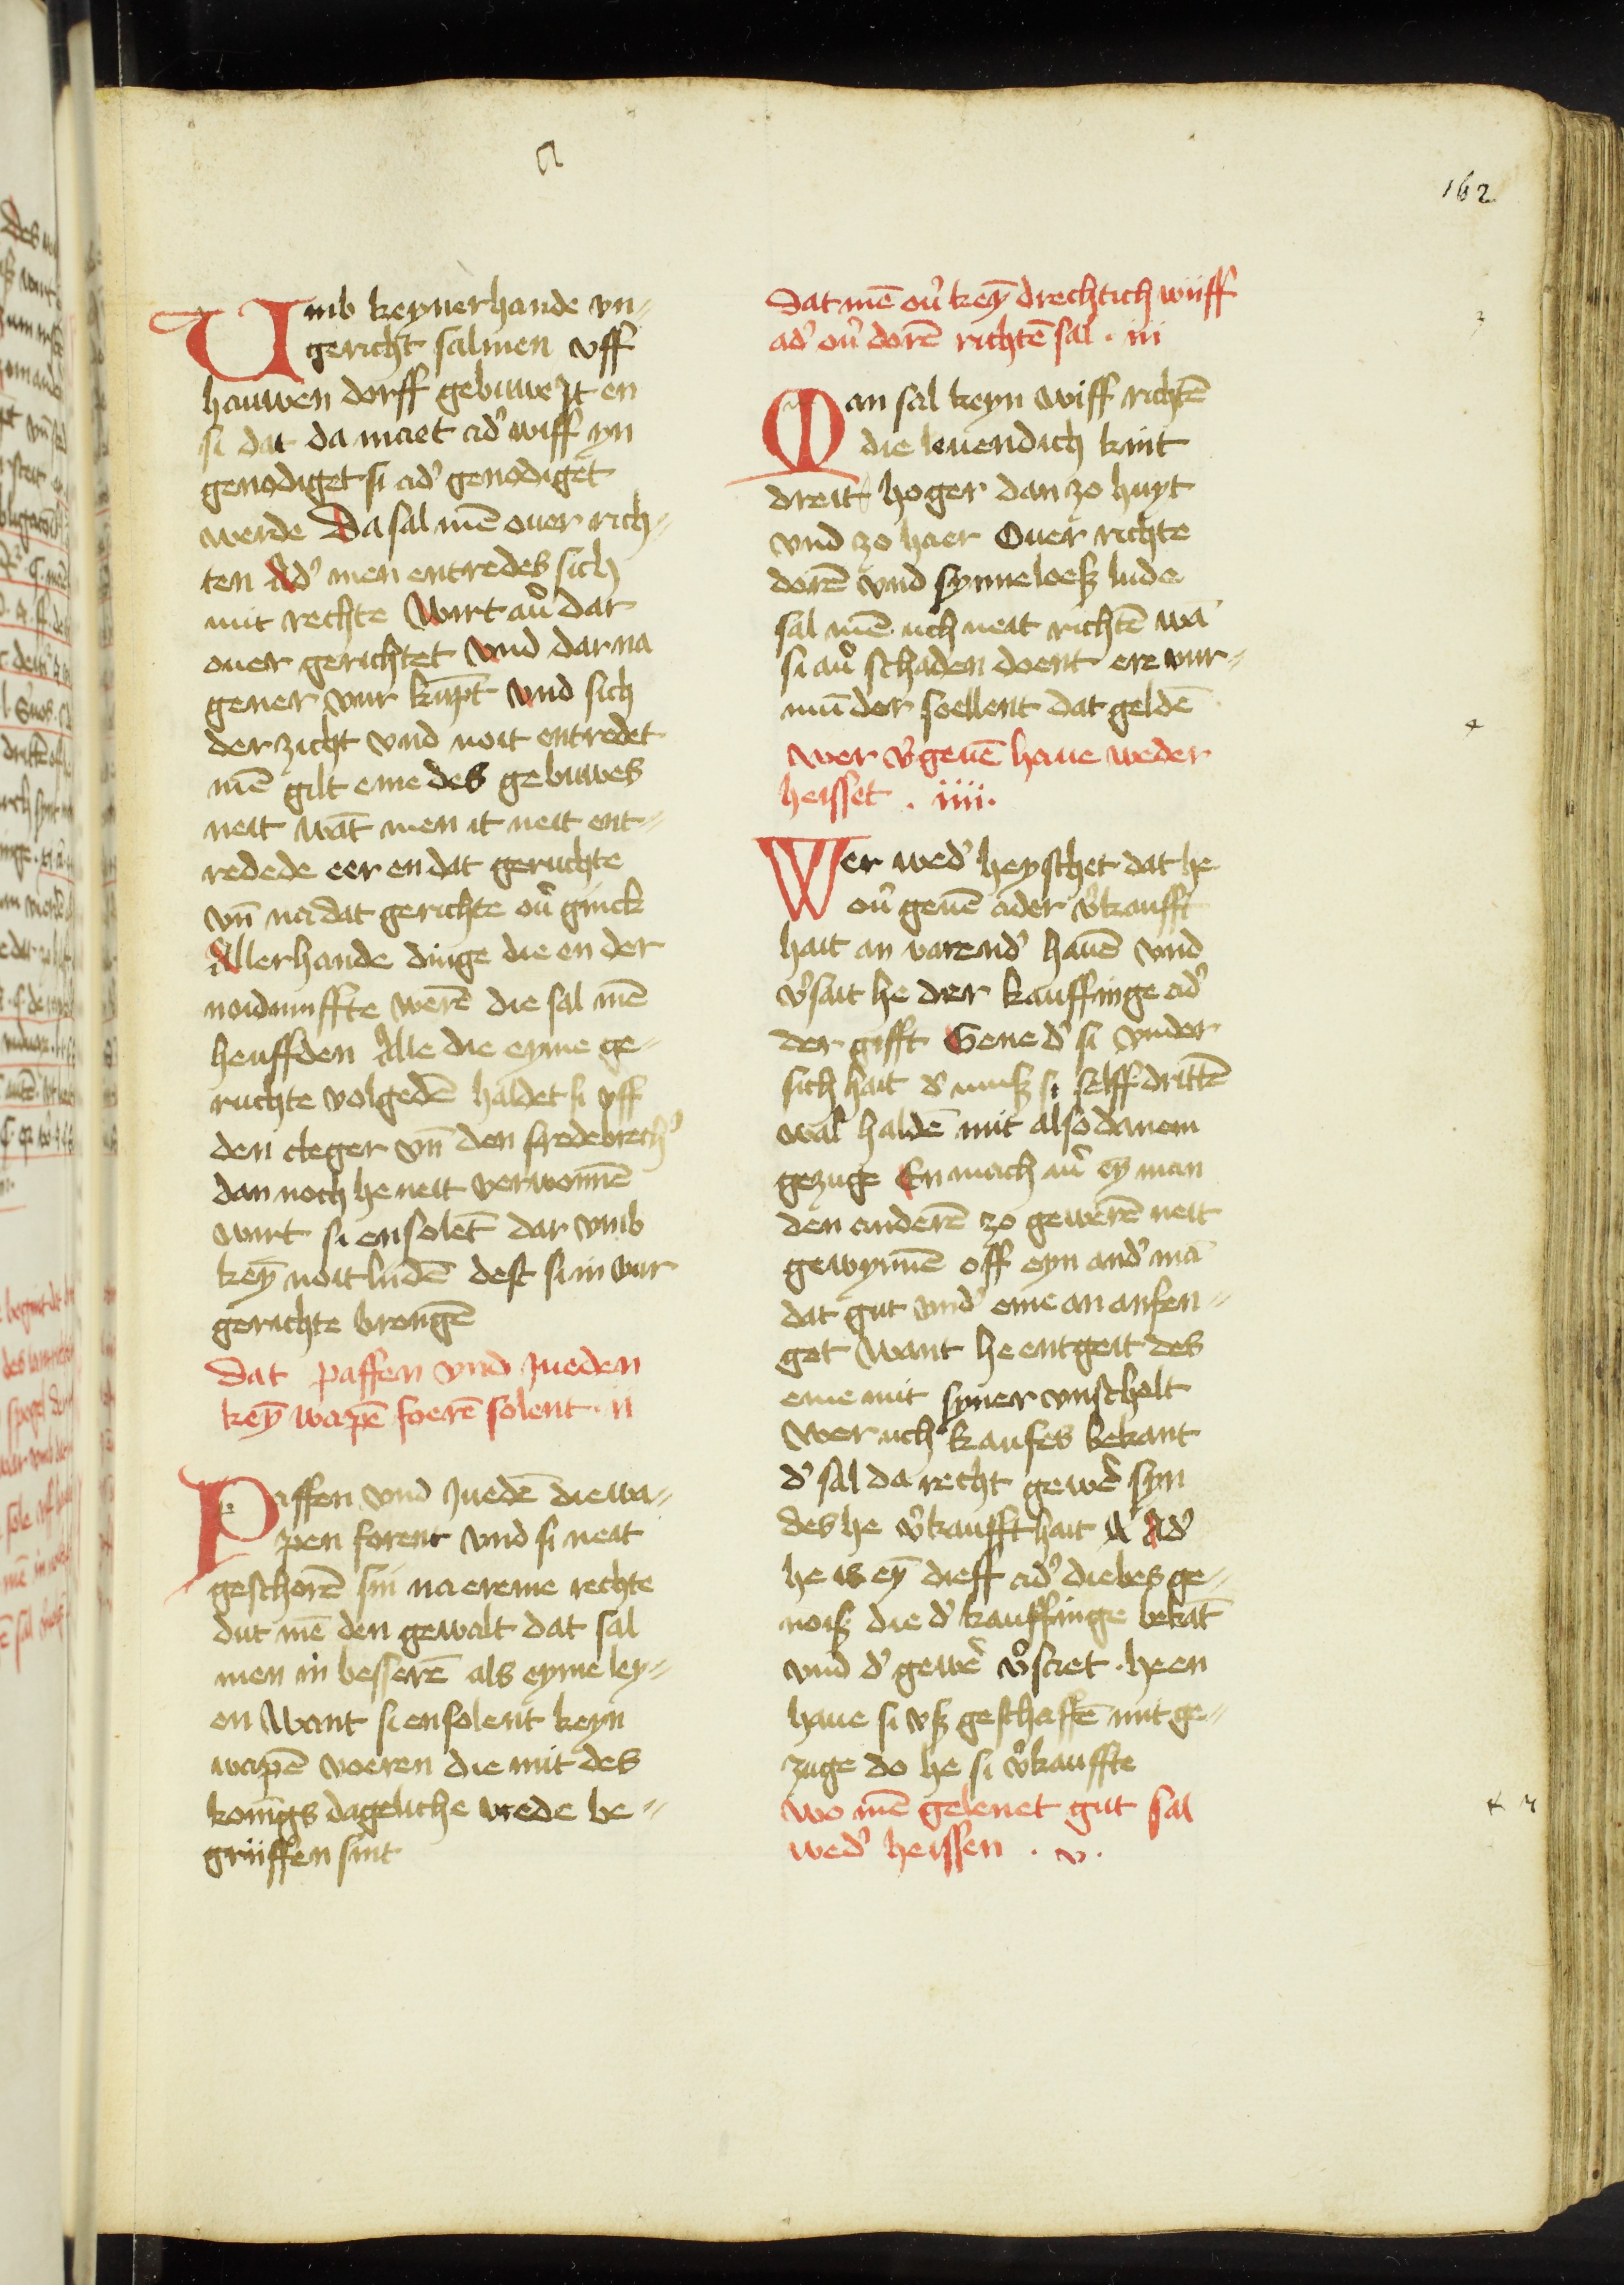 162
Vmb keynerhande vn-
gericht salmen vff
hauwen dorff gebuwe It en
si dat da maet adʼ wiff yn
genodiget si adʼ genodiget
werde Da sal mē ouer rich-
ten Adʼ men entredes sich
mit rechte Wirt auʼ dar
ouer gerichtet vnd dar na
gener vur kūpt vnd sich
der zicht vnd noit entredet
mē gilt eme des gebuwes
neit wāt men it neit ent-
redede eer en dat geruchte
vn̄ na dat gerichte ouʼ ginck
Allerhande dinge die en der
noidnuffte werē die sal mē
heuffden Alle die eyme ge-
ruchte volgedē haldet si vff
den cleger vn̄ den fredebrechʼ
dan noch he neit verwonnē
wirt si ensolet̄ dar vmb
key̅ noit lidē dest si in vur
gerichte brengē
Dat paffen vnd Jueden
key̅ wapē foerē solent. ii
Paffen vnd Juedē die wa-
pen forent vnd si neit
geschorē sin na ereme rechte
dut mē den gewalt dat sal
men in besserē als eyme ley-
en Want si ensolent keyn
wapē voeren die mit des
konīgs dageliche vrede be-
griiffen sint
Dat mē ouʼ key̅ drechtich wiiff
adʼ ouʼ dorē richtē sal. iii
Man sal keyn wiff richtē
die leuendich kint
dreit hoger dan zo huyt
vnd zo haer Ouer richte
dorē vnd synneloeß lude
sal mē uch neit richtē wā
si auʼ schaden doent ere vur-
mūder soellent dat geldē
Wer vʼgeuē haue weder
heisset. iiii.
Wer wedʼ heyschet dat he
ouʼ geuē ader vʼkaufft
hait an varendʼ hauē vnd
vʼsait he der kauffinge adʼ
der gifft Gene dʼ si vnder
sich hait dʼ muß si selff drittē
wal haldē mit alsodanem
gezuge En mach auʼ ey̅ man
den anderē zo gewerē neit
gewynnē off eyn andʼ mā
dat gut vndʼ eme an anfen-
get Want he entgeit des
eme mit syner vnschalt
Wer uch kaufes bekant
dʼ sal da recht gewerʼ syn
des he vʼkaufft hait Adʼ
he is ey̅ dieff adʼ diebes ge-
noiß die dʼ kauffinge bekāt
vnd dʼ gewerʼ vʼsaet. he en
haue si vß geschaffē mit ge-
zuge do he si vʼkauffte
Wo mē gelenet gut sal
wedʼ heissen. v.